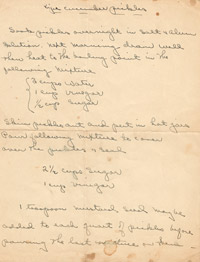 Ripe cucumber pickles
Soak pickles overnight in salt & alum
solution. Next morning drain well
then heat to the boiling point in the
following mixture
3 cups water
1 cup vinegar
½ cup sugar
Skim pickles out and put in hot jars
Pour following mixture to cover
over the pickles & seal
2½ cups sugar
1 cup vinegar
1 teaspoon mustard seed may be
added to each quart of pickles before
pouring the last mixture on them